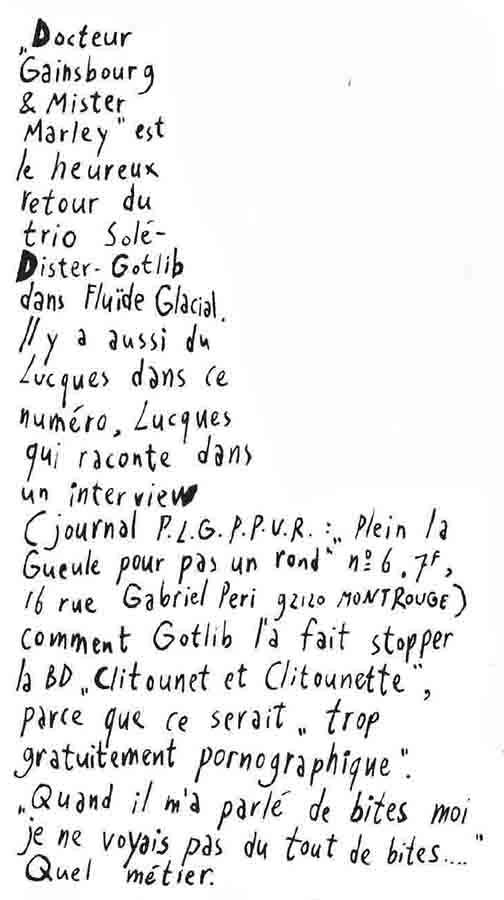 „Docteur
Gainsbourg
& Mister
Marley" est
le heureux
retour du
trio Solé-
Dister-Gotlib
dans Fluïde Glacial.
Il y a aussi du
Lucques dans ce
numéro, Lucques
qui raconte dans
un interview
(journal P.L.G.P.P.U.R. : „Plein la
Gueule pour pas un rond" nº 6, 7F,
16 rue Gabriel Peri 92120 MONTROUGE)
comment Gotlib l'a fait stopper
la BD „Clitounet et Clitounette",
parce que ce serait „trop
gratuitement pornographique".
„Quand il m'a parlé de bites moi
je ne voyais pas du tout de bites...."
Quel métier.